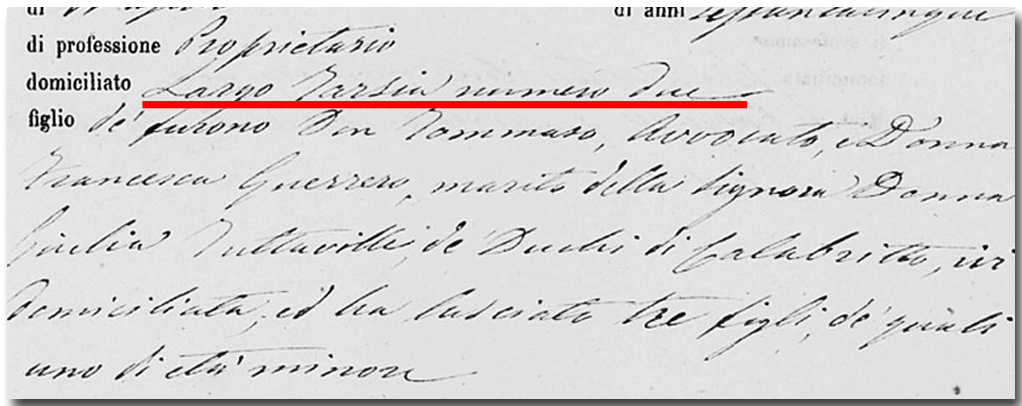 di anni settantacinque
di professione Proprietario
domiciliato Largo Tarsia numero due
figlio de' furono Don Tommaso, Avvocato, e Donna
Francesca Guerrero, marito della Signora Donna
Giulia Tuttavilla, de' Duchi di Calabritto, ivi
domiciliata, ed ha lasciato tre figli, de' quali
uno di età minore